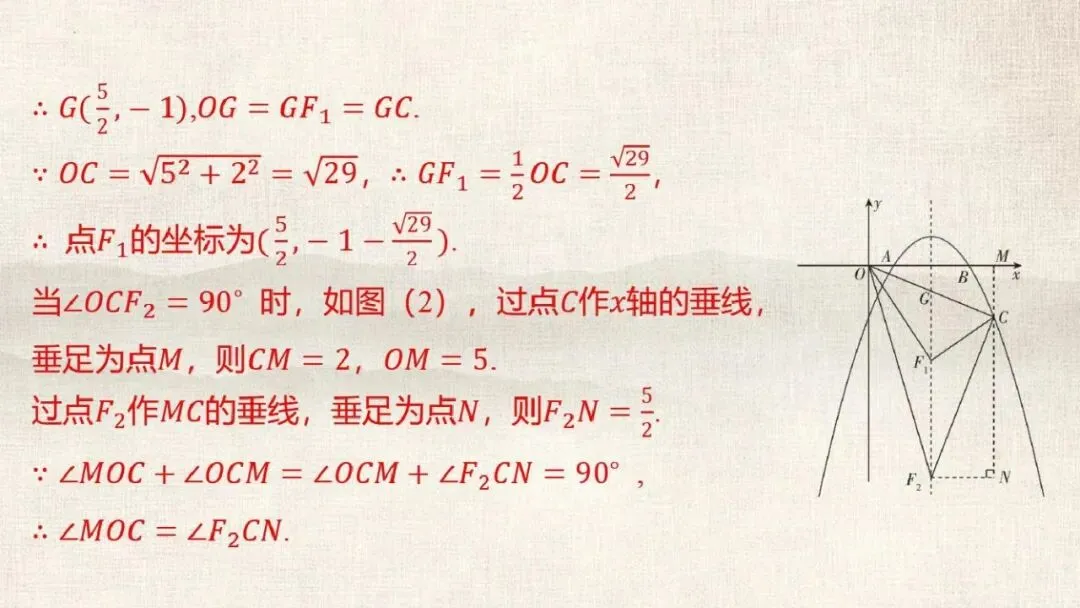 ∴ G(5/2, −1), OG = GF₁ = GC.
∵ OC = √(5² + 2²) = √29, ∴ GF₁ = 1/2 OC = √29/2,
∴ 点F₁的坐标为(5/2, −1 − √29/2).
当∠OCF₂ = 90° 时，如图（2），过点C作x轴的垂线，
垂足为点M，则CM = 2，OM = 5.
过点F₂作MC的垂线，垂足为点N，则F₂N = 5/2.
∵ ∠MOC + ∠OCM = ∠OCM + ∠F₂CN = 90° ,
∴ ∠MOC = ∠F₂CN.
y
A
M
O
B
x
G
C
F₁
F₂
N